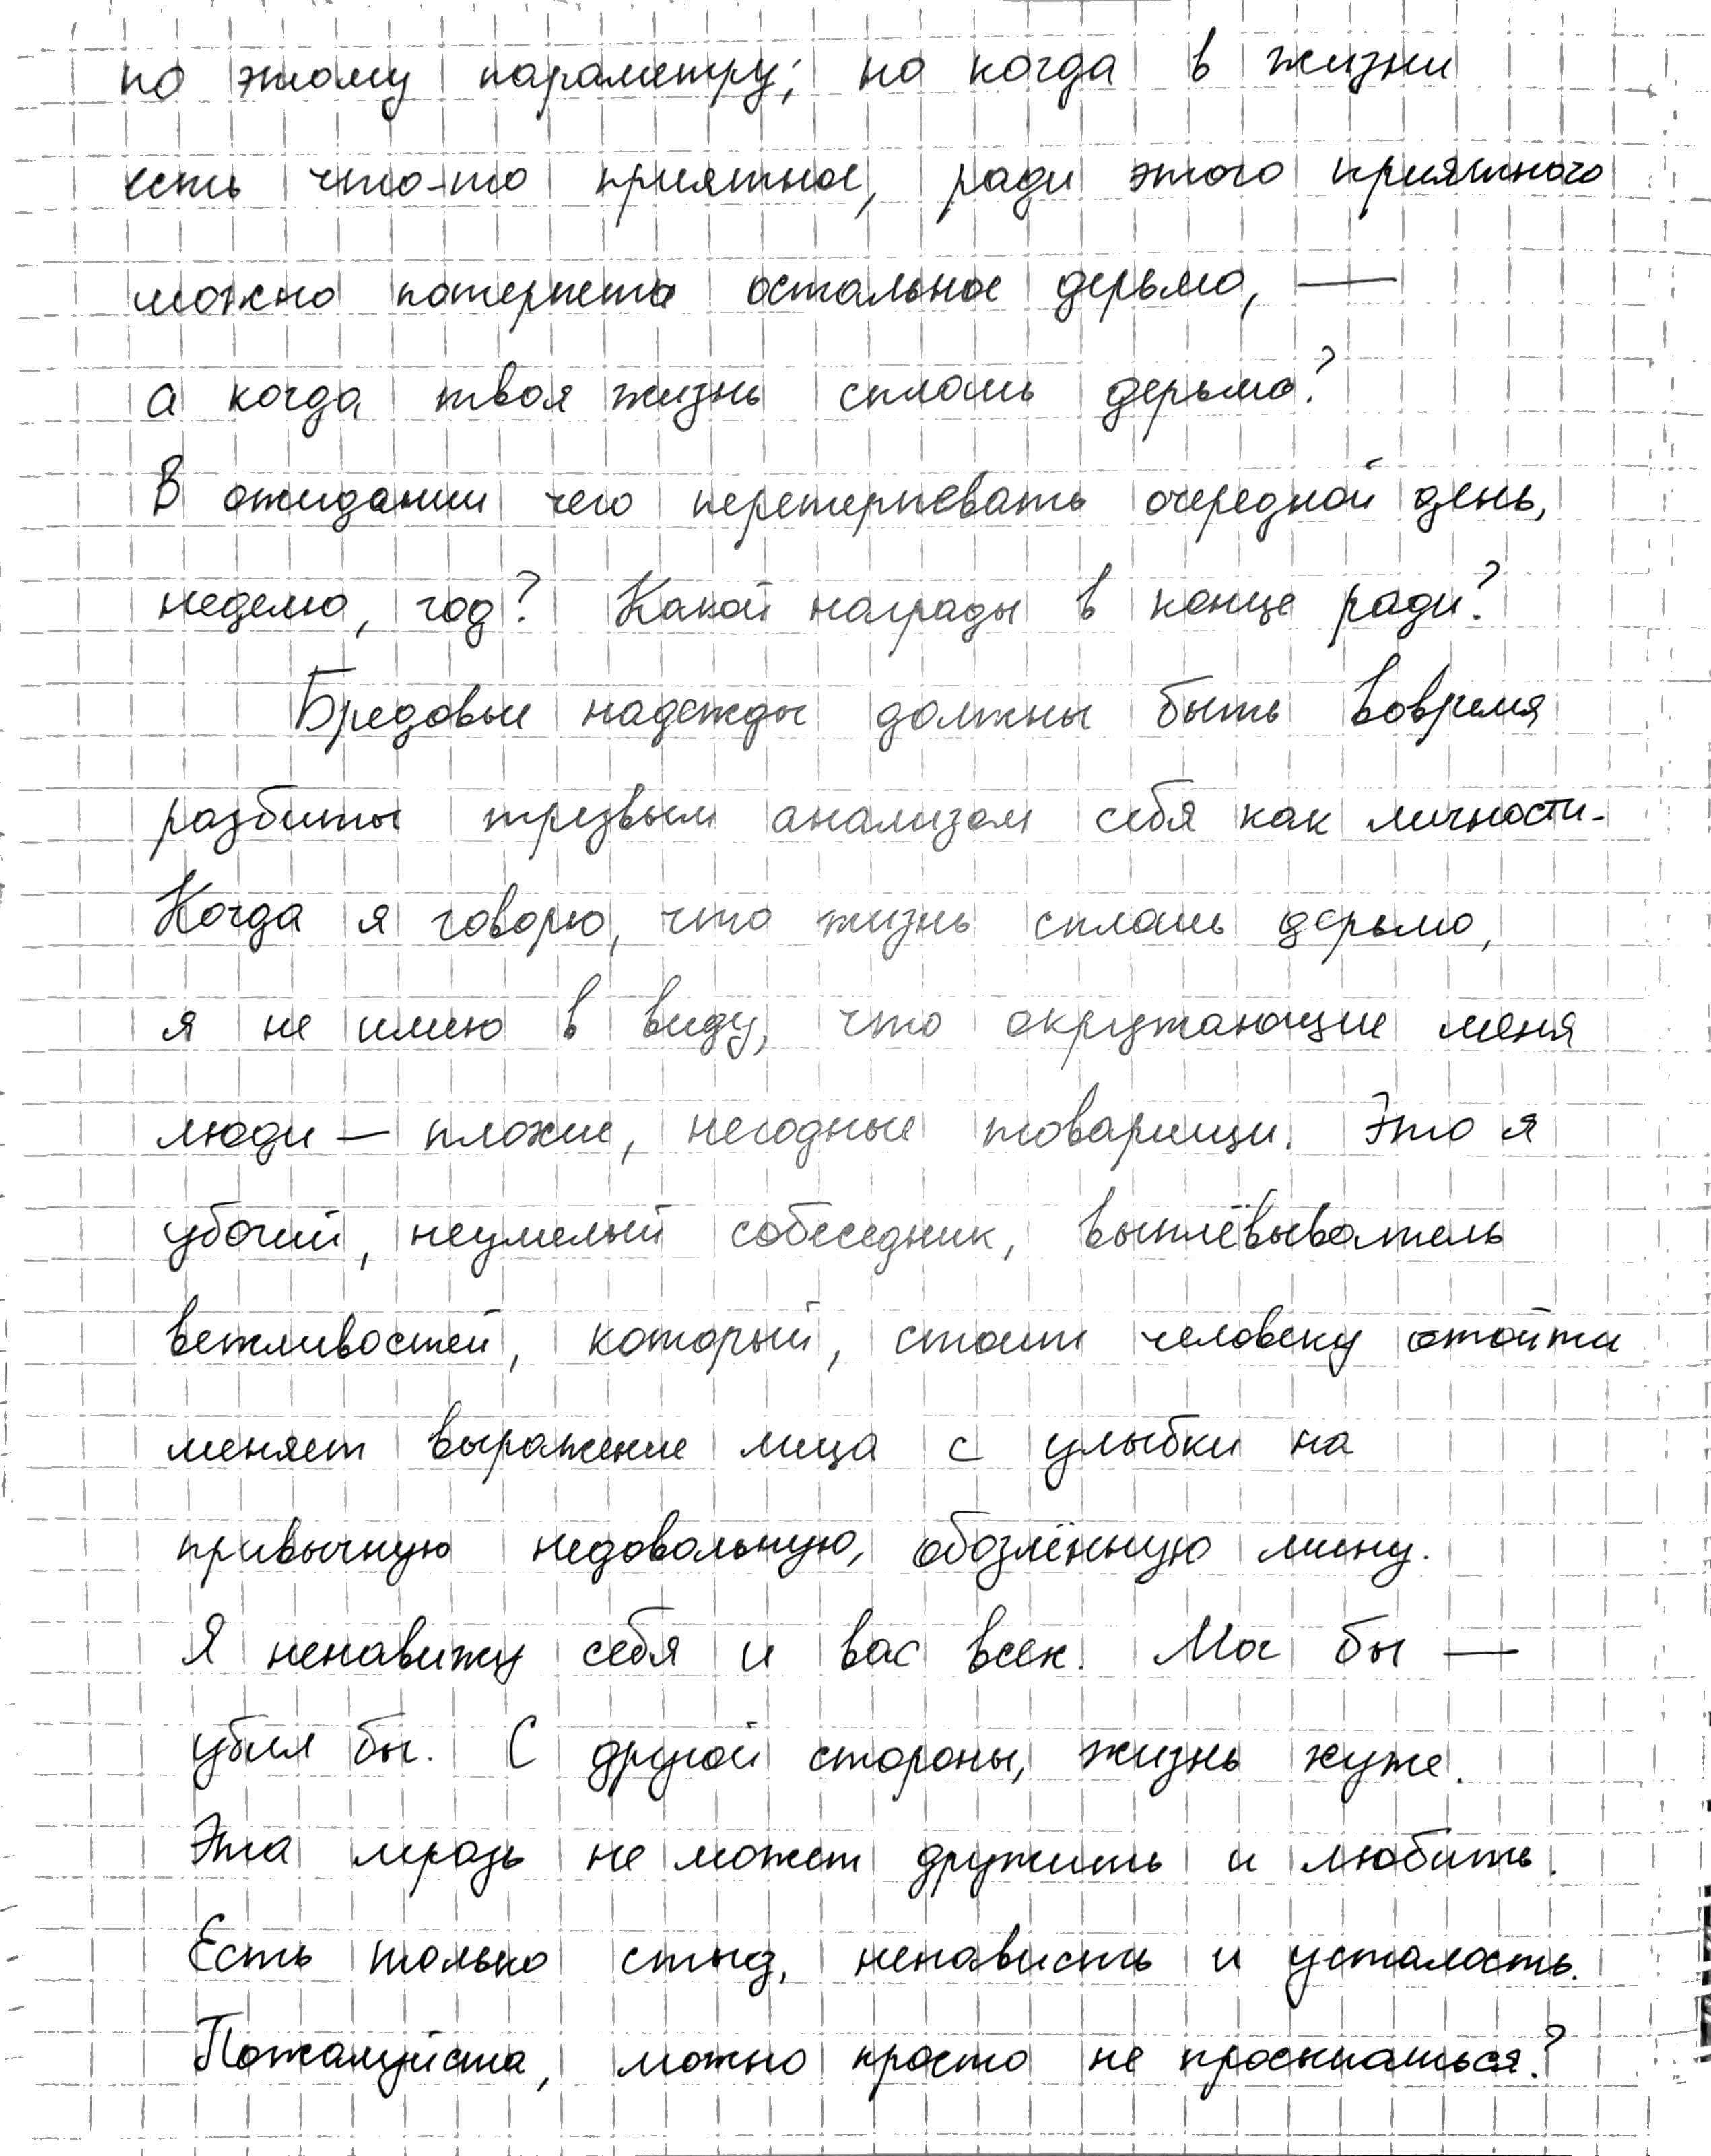 по этому параметру; но когда в жизни
есть что-то приятное, ради этого приятного
можно потерпеть остальное дерьмо, —
а когда твоя жизнь сплошь дерьмо?
В ожидании чего перетерпевать очередной день,
неделю, год? Какой награды в конце ради?
Бредовые надежды должны быть вовремя
разбиты трезвым анализом себя как личности.
Когда я говорю, что жизнь сплошь дерьмо,
я не имею в виду, что окружающие меня
люди — плохие, негодные товарищи. Это я
убогий, неумелый собеседник, выплёвыватель
вежливостей, который, стоит человеку отойти
меняет выражение лица с улыбки на
привычную недовольную, обозлённую мину.
Я ненавижу себя и вас всех. Мог бы —
убил бы. С другой стороны, жизнь хуже.
Эта мразь не может дружить и любить.
Есть только стыд, ненависть и усталость.
Пожалуйста, можно просто не просыпаться?